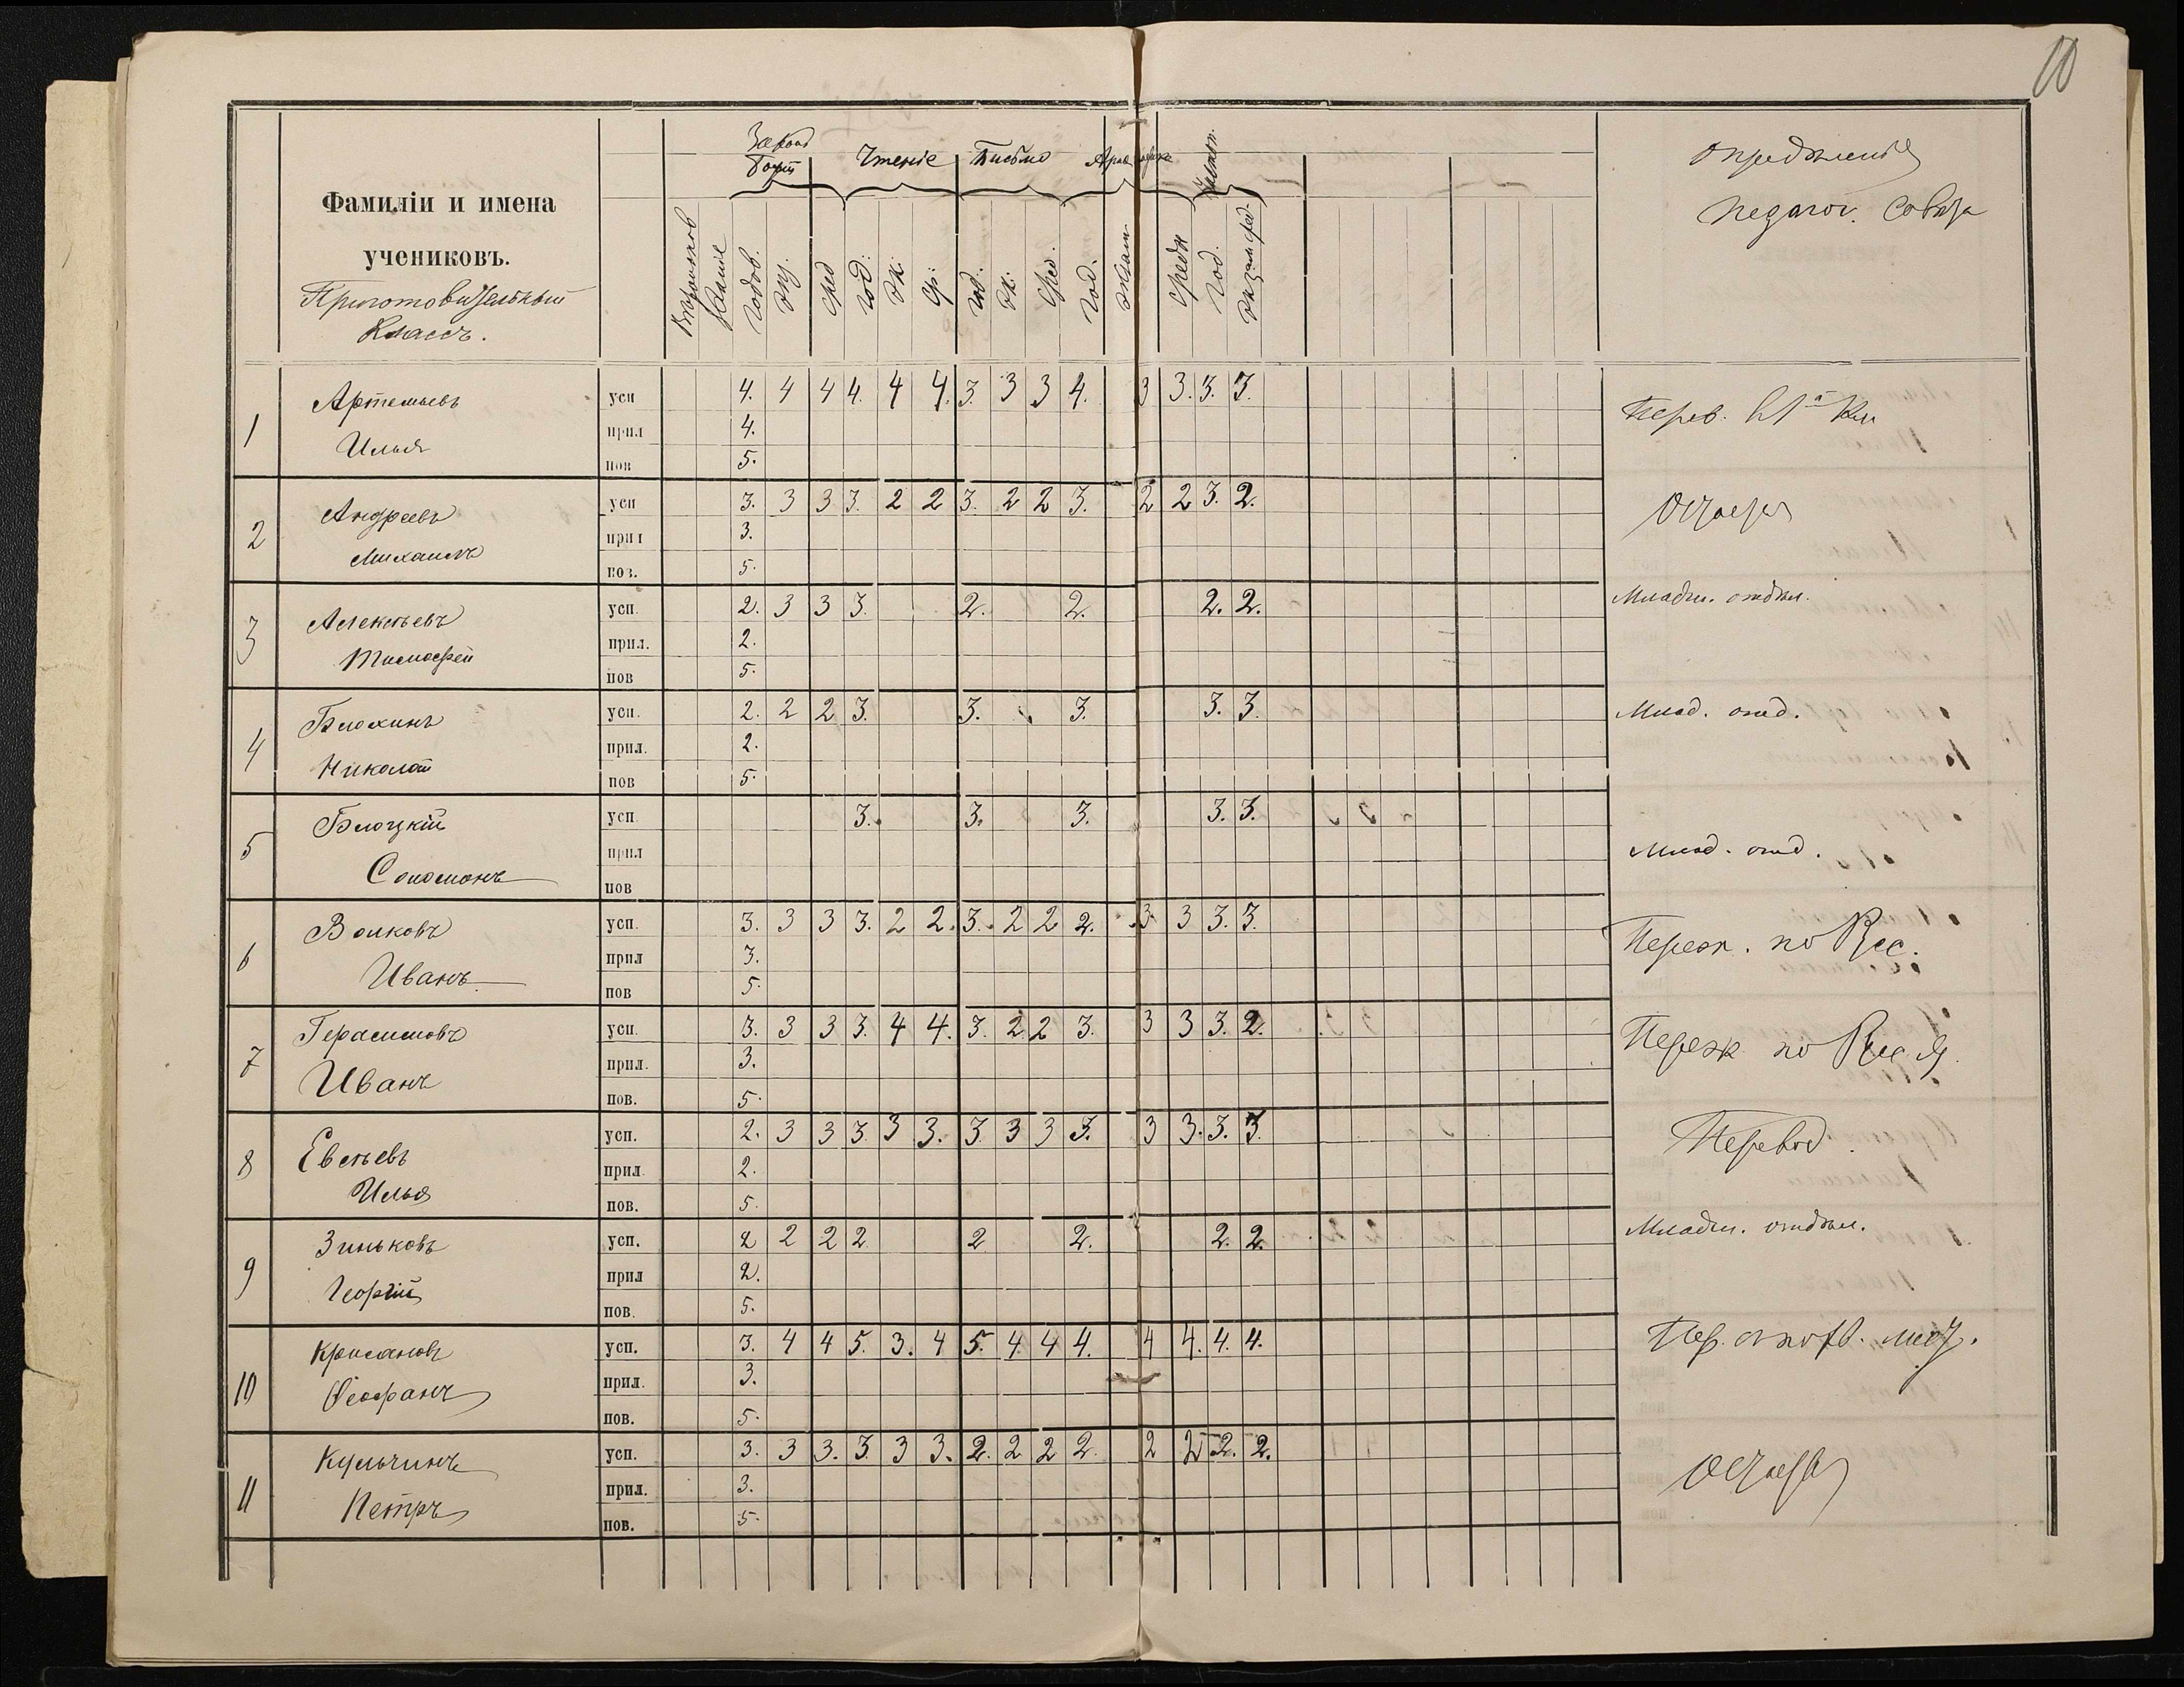 10
Фамиліи и имена
учениковъ.
Приготовительный
Классъ.
Законъ
Чтеніе Письмо
годов. экз. сред год. эк. ср. год. эк. сред. год. экзам. средн год. экзам. сред.
Опредѣленіе
педагог. Совѣта
1 Артемьевъ усп 4. 4 4 4. 4 4. 3. 3 3 4. 3 3. 3. 3. Перев. въ 1й Кл
Илья прил 4.
пов 5.
2 Андреевъ усп 3. 3 3 3. 2 2 3. 2 2 3. 2 2 3. 2. Остается
Михаилъ прил 3.
пов. 5.
3 Алексѣевъ усп. 2. 3 3 3. 2. 2. 2. 2. Младш. отдѣл.
Тимофей прил. 2.
пов 5.
4 Блохинъ усп. 2. 2 2 3. 3. 3. 3. 3. Млад. отд.
Николай прил. 2.
пов 5.
5 Блоцкій усп. 3. 3. 3. 3. 3.
прил Млад. отд.
Соломонъ пов
6 Волковъ усп. 3. 3 3 3. 2 2. 3. 2 2 2. 3. 3 3. 3. Переэк. по Рус.
Иванъ прил 3.
пов 5.
7 Герасимовъ усп. 3. 3 3 3. 4 4. 3. 2. 2 3. 3 3 3. 2. Переэк по Рус. Я.
Иванъ прил. 3.
пов. 5.
8 Евсѣевъ усп. 2. 3 3 3. 3 3. 3. 3 3 3. 3 3. 3. 3. Перевод.
Илья прил. 2.
пов. 5.
9 Зиньковъ усп. 2 2 2 2 2 2. 2. 2. Младш. отдѣл.
Георгій прил 2.
пов. 5.
10 Крисановъ усп. 3. 4 4 5. 3. 4 5. 4 4 4. 4 4. 4. 4.
Ѳеофанъ прил. 3.
пов. 5.
11 Кульчинъ усп. 3. 3 3. 3. 3 3. 2. 2 2 2. 2 2 2. 2. Остается
Петръ прил. 3.
пов. 5.